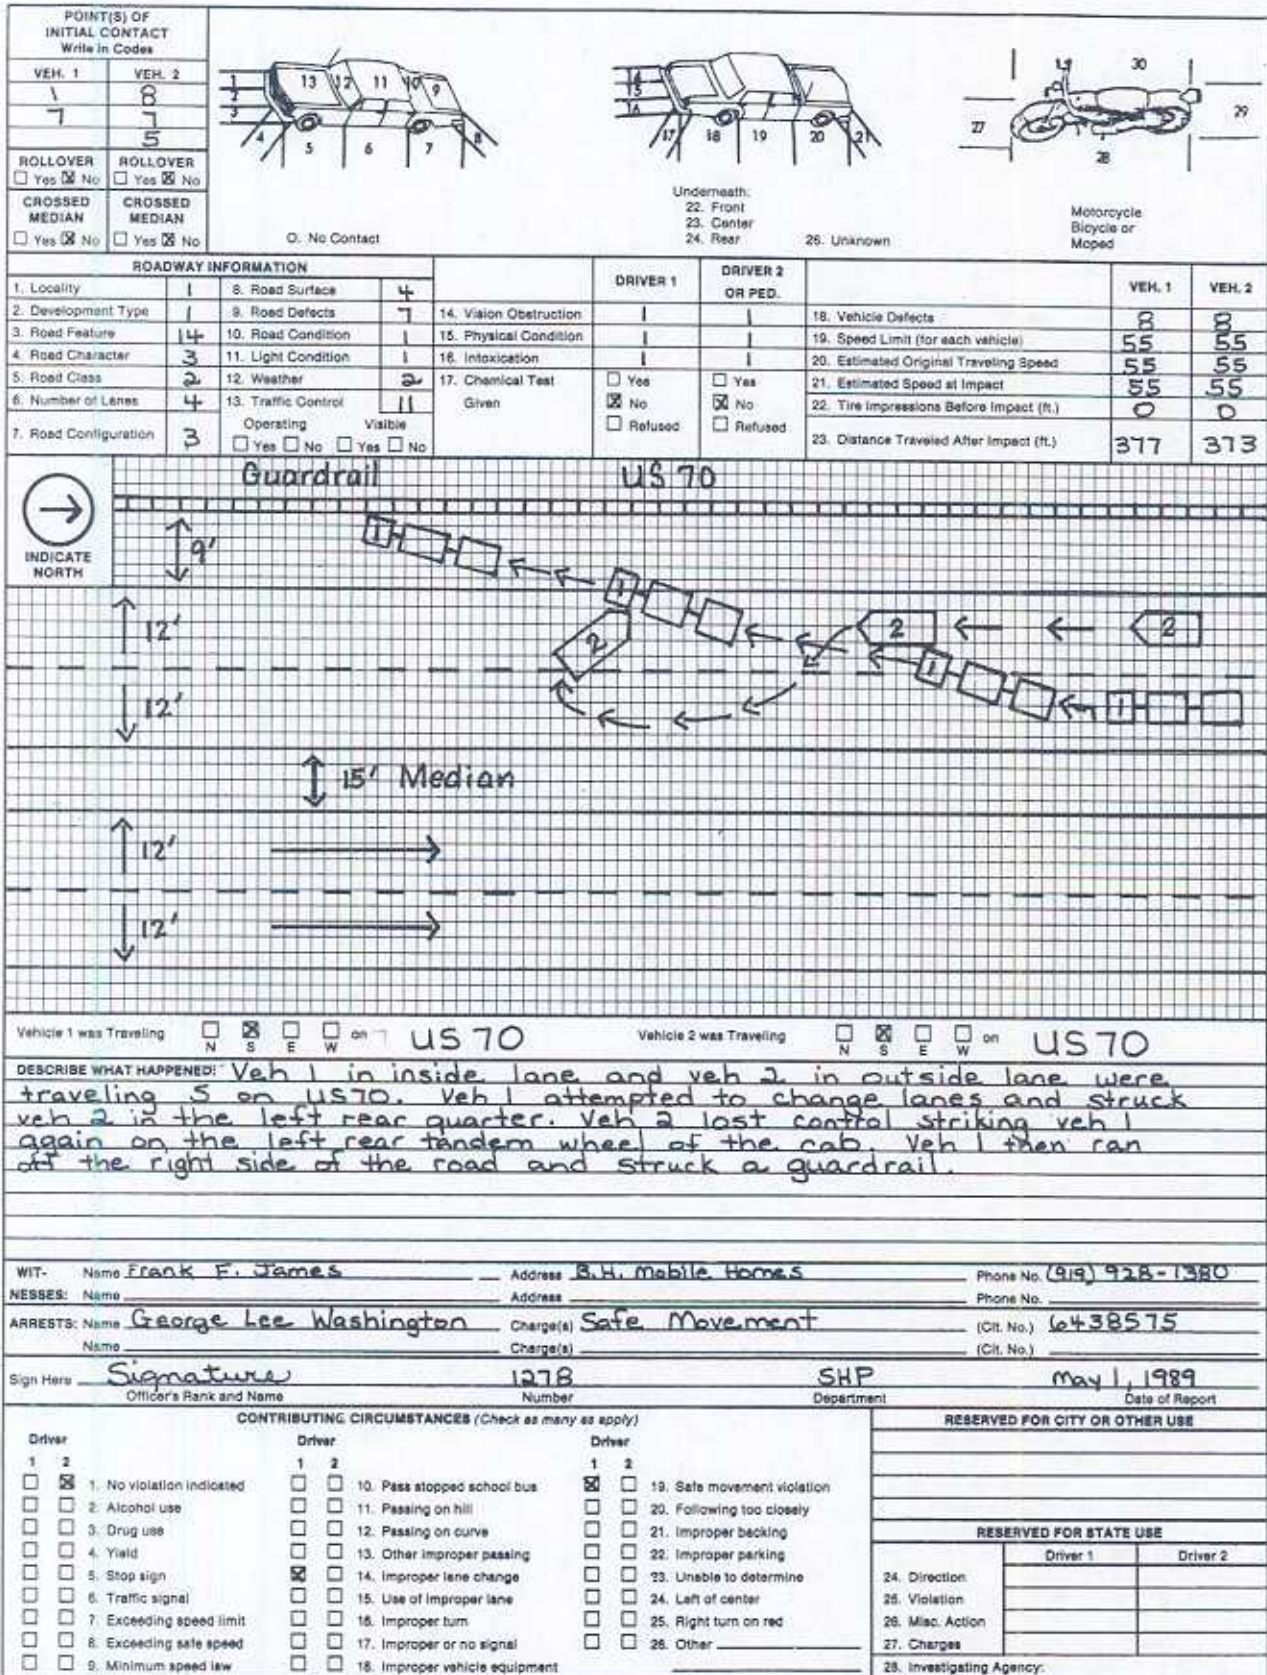 POINT(S) OF
INITIAL CONTACT
Write in Codes
VEH. 1 VEH. 2
1 8
7 7
5
ROLLOVER ROLLOVER
☐ Yes ☒ No ☐ Yes ☒ No
CROSSED MEDIAN CROSSED MEDIAN
☐ Yes ☒ No ☐ Yes ☒ No
1 2 3 4 5 6 7 8 9 10 11 12 13
0. No Contact
14 15 16 17 18 19 20 21
Underneath:
22. Front
23. Center
24. Rear 26. Unknown
27 28 29 30
Motorcycle
Bicycle or
Moped
ROADWAY INFORMATION
1. Locality 1
2. Development Type 1
3. Road Feature 14
4. Road Character 3
5. Road Class 2
6. Number of Lanes 4
7. Road Configuration 3
8. Road Surface 4
9. Road Defects 7
10. Road Condition 1
11. Light Condition 1
12. Weather 2
13. Traffic Control 11
Operating Visible
☐ Yes ☐ No ☐ Yes ☐ No
DRIVER 1 DRIVER 2 OR PED.
14. Vision Obstruction 1 1
15. Physical Condition 1 1
16. Intoxication 1 1
17. Chemical Test Given
☐ Yes ☐ Yes
☒ No ☒ No
☐ Refused ☐ Refused
VEH. 1 VEH. 2
18. Vehicle Defects 8 8
19. Speed Limit (for each vehicle) 55 55
20. Estimated Original Traveling Speed 55 55
21. Estimated Speed at Impact 55 55
22. Tire Impressions Before Impact (ft.) 0 0
23. Distance Traveled After Impact (ft.) 377 373
INDICATE
NORTH
Guardrail US 70
9'
1
1
12'
2 2 2
1 1
12'
15' Median
12'
12'
Vehicle 1 was Traveling ☐ N ☒ S ☐ E ☐ W on US 70 Vehicle 2 was Traveling ☐ N ☒ S ☐ E ☐ W on US 70
DESCRIBE WHAT HAPPENED: Veh 1 in inside lane and veh 2 in outside lane were
traveling S on US70. Veh 1 attempted to change lanes and struck
veh 2 in the left rear quarter. Veh 2 lost control striking veh 1
again on the left rear tandem wheel of the cab. Veh 1 then ran
off the right side of the road and struck a guardrail.
WIT- Name Frank F. James Address B.H. Mobile Homes Phone No. (919) 928-1380
NESSES: Name Address Phone No.
ARRESTS: Name George Lee Washington Charge(s) Safe Movement (Cit. No.) 6438575
Name Charge(s) (Cit. No.)
Sign Here Signature 1278 SHP May 1, 1989
Officer's Rank and Name Number Department Date of Report
CONTRIBUTING CIRCUMSTANCES (Check as many as apply)
Driver
1 2
☐ ☒ 1. No violation indicated
☐ ☐ 2. Alcohol use
☐ ☐ 3. Drug use
☐ ☐ 4. Yield
☐ ☐ 5. Stop sign
☐ ☐ 6. Traffic signal
☐ ☐ 7. Exceeding speed limit
☐ ☐ 8. Exceeding safe speed
☐ ☐ 9. Minimum speed law
Driver
1 2
☐ ☐ 10. Pass stopped school bus
☐ ☐ 11. Passing on hill
☐ ☐ 12. Passing on curve
☐ ☐ 13. Other improper passing
☒ ☐ 14. Improper lane change
☐ ☐ 15. Use of improper lane
☐ ☐ 16. Improper turn
☐ ☐ 17. Improper or no signal
☐ ☐ 18. Improper vehicle equipment
Driver
1 2
☒ ☐ 19. Safe movement violation
☐ ☐ 20. Following too closely
☐ ☐ 21. Improper backing
☐ ☐ 22. Improper parking
☐ ☐ 23. Unable to determine
☐ ☐ 24. Left of center
☐ ☐ 25. Right turn on red
☐ ☐ 26. Other
RESERVED FOR CITY OR OTHER USE
RESERVED FOR STATE USE
Driver 1 Driver 2
24. Direction
25. Violation
26. Misc. Action
27. Charges
28. Investigating Agency: